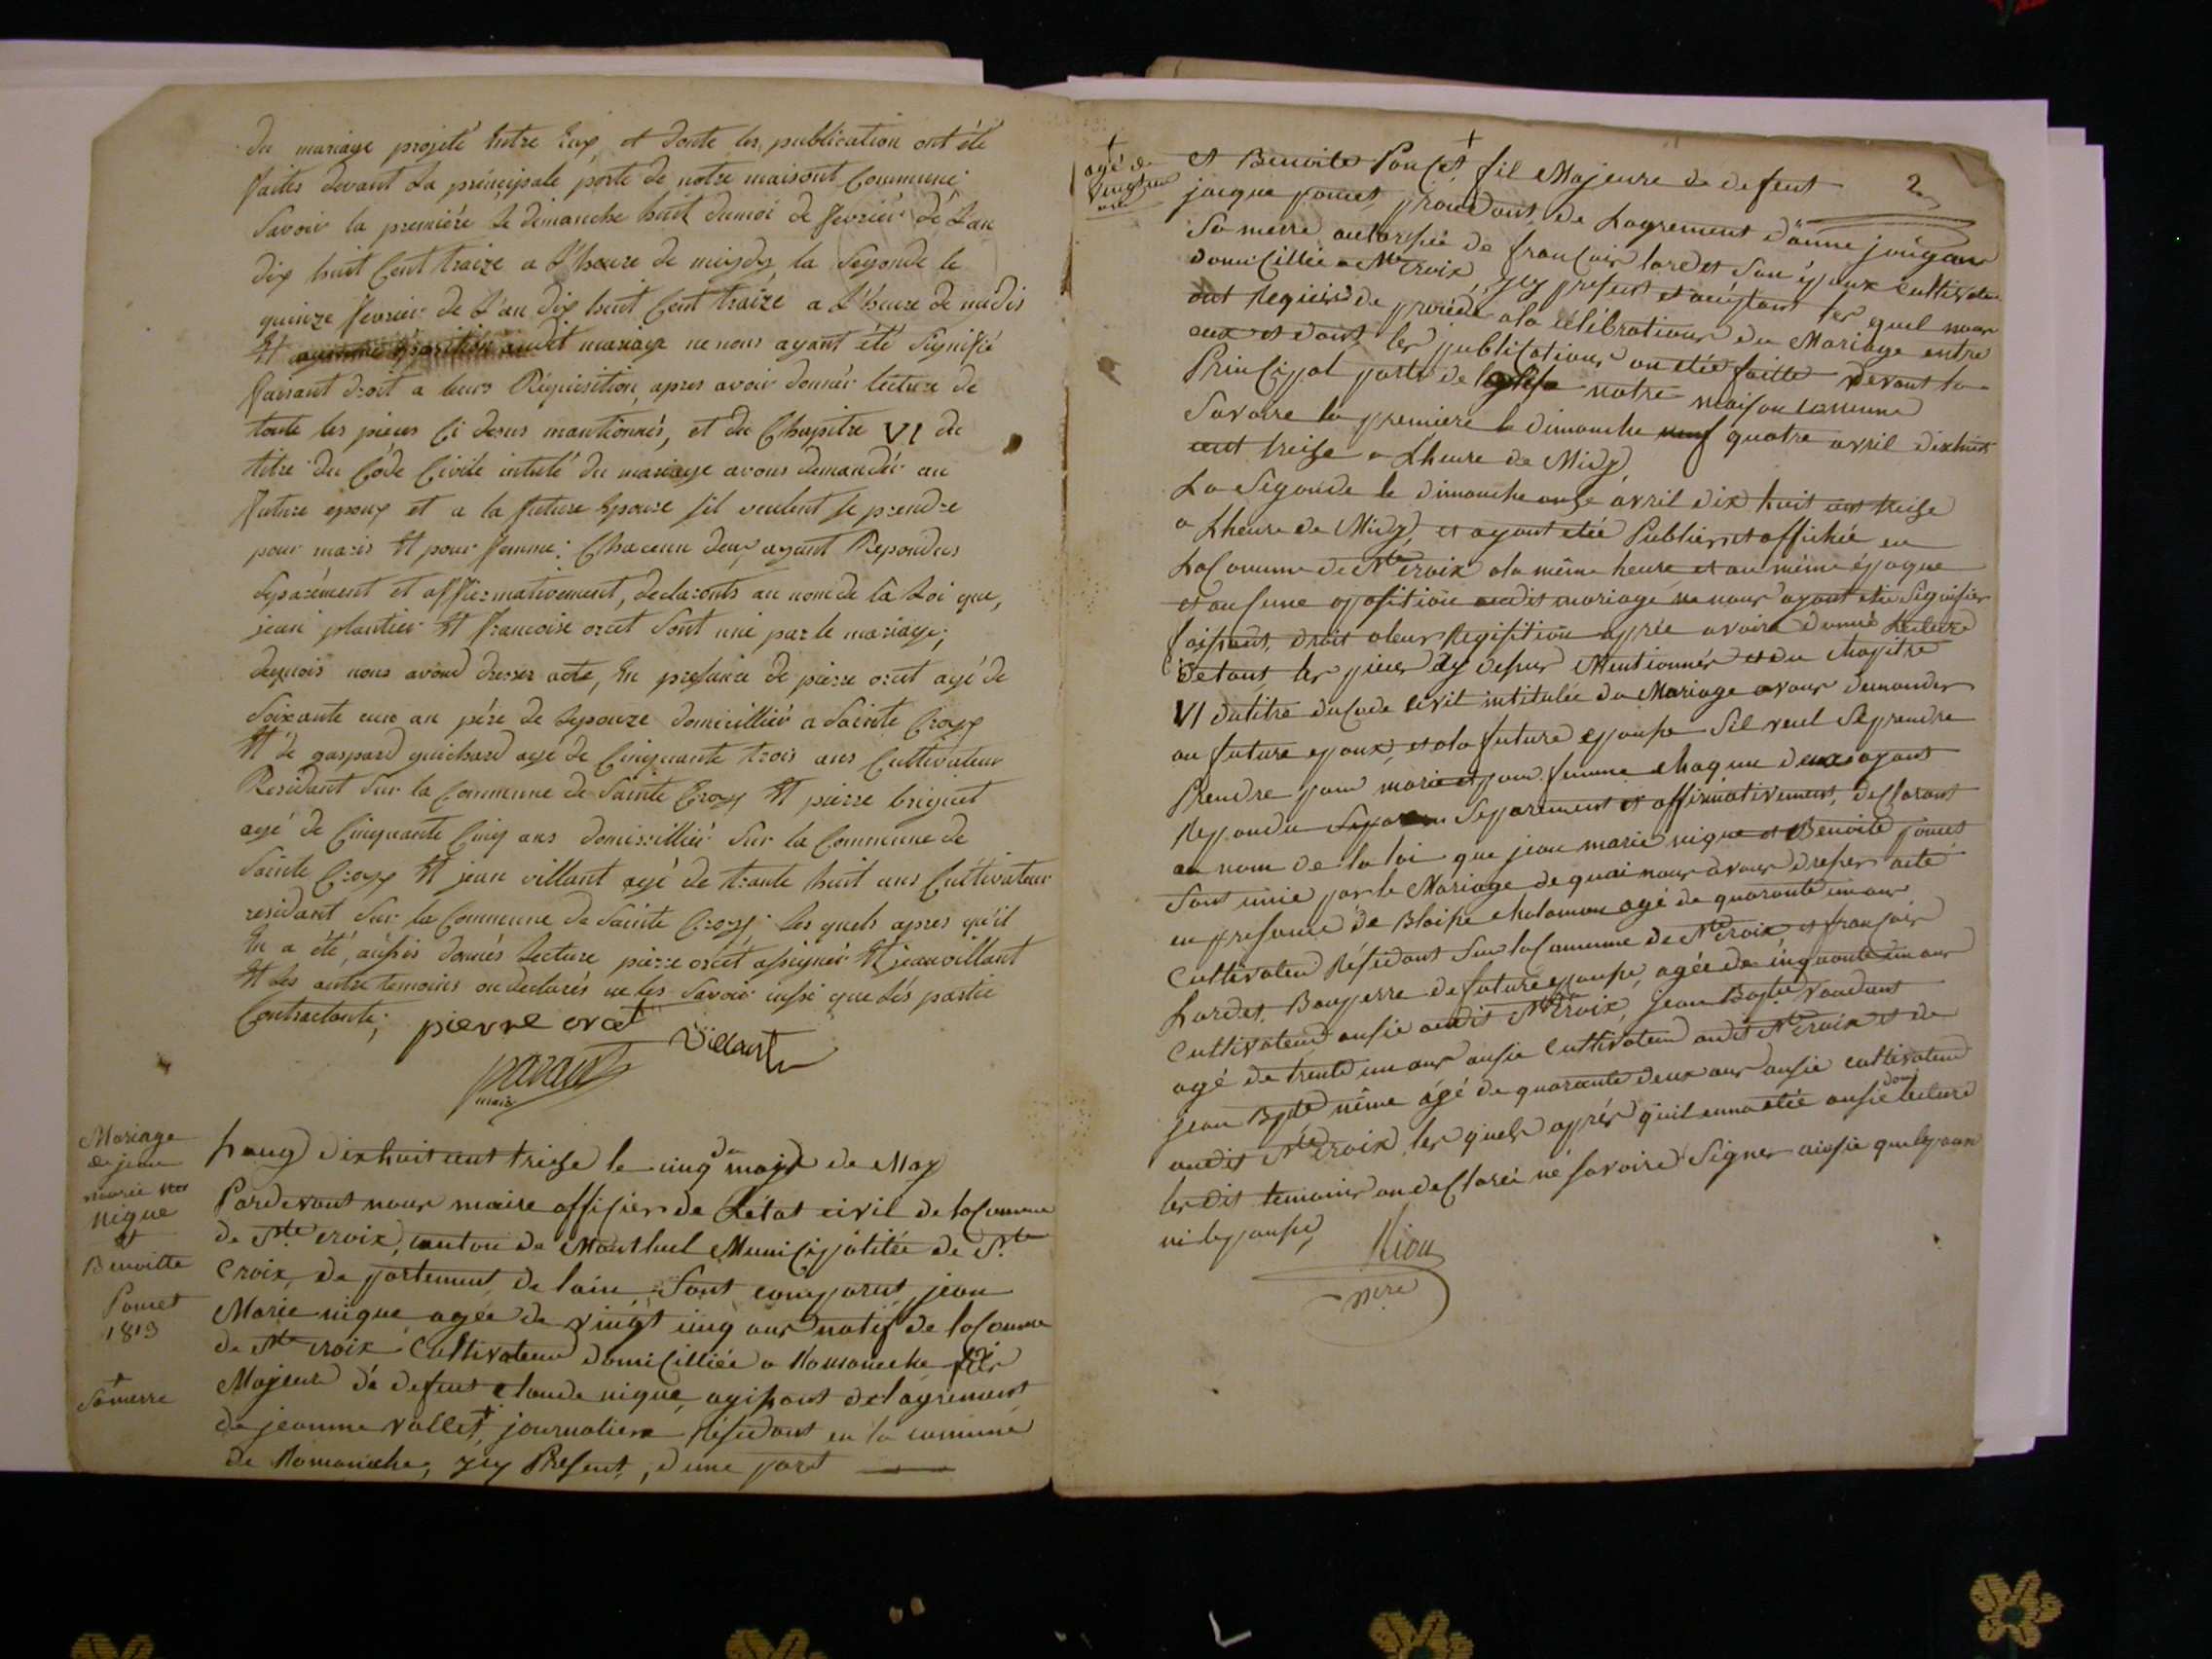 du mariage projeté Entre Eux et donte les publication ont été
faites devant La préncipale porte de notre maisont Commune
Savoir la première le dimanche huit dumoi de fevriér dé L'an
dix huit Cent traize a L'heure de miydy la Segonde le
quinze fevrier de L'an dix huit Cent traize a L'heure de midis
Et audit mariage ne nous ayant été Signifié
faisant droit a leurs Réquisition, apres avoir donnér lecture de
toute les pieces Ci desus mantionnés, et du Chapitre VI du
titre du Côde Civile intulé du mariage avons demandér au
future epoux et a la future Epouse sil veulent se prendre
pour maris Et pour femme: Chacenu deux ayant Repondus
Séparément et affiermativement, declaronts au nom de la Loi que,
jean plantier Et francoise orcet Sont uni par le mariage;
dequois nous avond dresser acte, En presance de pierre orcet agé de
Soixante un an pére de Lepouze domicilliér a Sainte Croyx
Et de gaspard guichard agé de Cinquante trois ans Cultivateur
Residant Sur la Commune de Sainte Croyx Et pierre briguet
agé de Cinquante Cinq ans domicilliér Sur la Commune de
Sainte Croyx Et jean villant agé de trante huit ans Cultivateur
residant Sur la Commune de Sainte Croyx; les quels apres qu'il
En a été, aussis donnés Lecture pierre orcet assignér Et jean villant
Et Les autre temoins on declarés ne les Savoir insi que Lés partie
Contractante; pierre orcet
Villant
mair
Mariage
de jean
marie
nique
et
Benoitte
Poncet
1813
+
Samerre
Lang dixhuit cent treise le cinq du mois de May
Pardevant nous maire officier de L'état civil de laComune
de Ste croix, canton de Montluel Municipalitée de Ste
Croix, departement de lain, Sont comparut, jean
Marie nique agée de vingt cinq ans natif de laComune
de Ste croix Cultivateur domicilliée a Romaneche fils
Majeur dé defunt Claude nique, agissant del agrement
de jeanne vallet + journaliere Résidant en la comune
de Romaneche, ycy Present, d'une part
+
agé de
vingt un
ans
2
et Benoite Poncet + fil Majeure de defeut
jacque poncet, procedant de Lagrement d'anne
Sa merre autorisée de francois lardet Son époux Cultivateur
domicilliée a Ste croix ycy present et acceptant les quel nous
ont Requis de procéder ala célébrations du Mariage entre
eux et dont les publications on étée faitte devant la
Principal porte de notre maison comune
Savoire la premiere le dimanche quatre avril dixhuit
cent treise a Lheure de Midy
La Segonde le dimanche onze avril dix huit cent treise
a Lheure de Midy, et ayant étée Publier et affichée en
LaComune de Ste croix ala même heure et au même époque
et aucune oposition audit mariage ne nous ayant étée Signifier
faissant, droit aleur Requisition aprée avoire donné Lecture
de tous les pieces cy desus Mentionnés et du chapitre
VI dutitre duCode civil intitulée du Mariage avons demander
au future epoux, et ala future epouse Sil veul Seprendre
Prendre pour marie et pour femme chaqun deux ayant
Repondu Separement et affirmativement, declarant
au nom de la loi que jean marie nique et Benoite poncet
Sont unie par le Mariage de quoi nous avons dresser acte
en presance de Blaise chalamon agé de quarante un ans
Cultivateur Résidant Sur laComune de Ste croix et francois
Lardet, Bauperre de future epouse, agée de cinquante un ans
Cultivateur ausie audit Ste Croix, jean Bapte vaudant
agé de trente un ans ausie Cultivateur audit Ste croix et de
jean Bpte même agé de quarante deux ans ausie cultivateur
audit Ste croix les quels aprés quil enna étée ausie donné lecture
les dit temoins on declarée né savoire Signer ainsie que lepoux
ni lepouse
mere